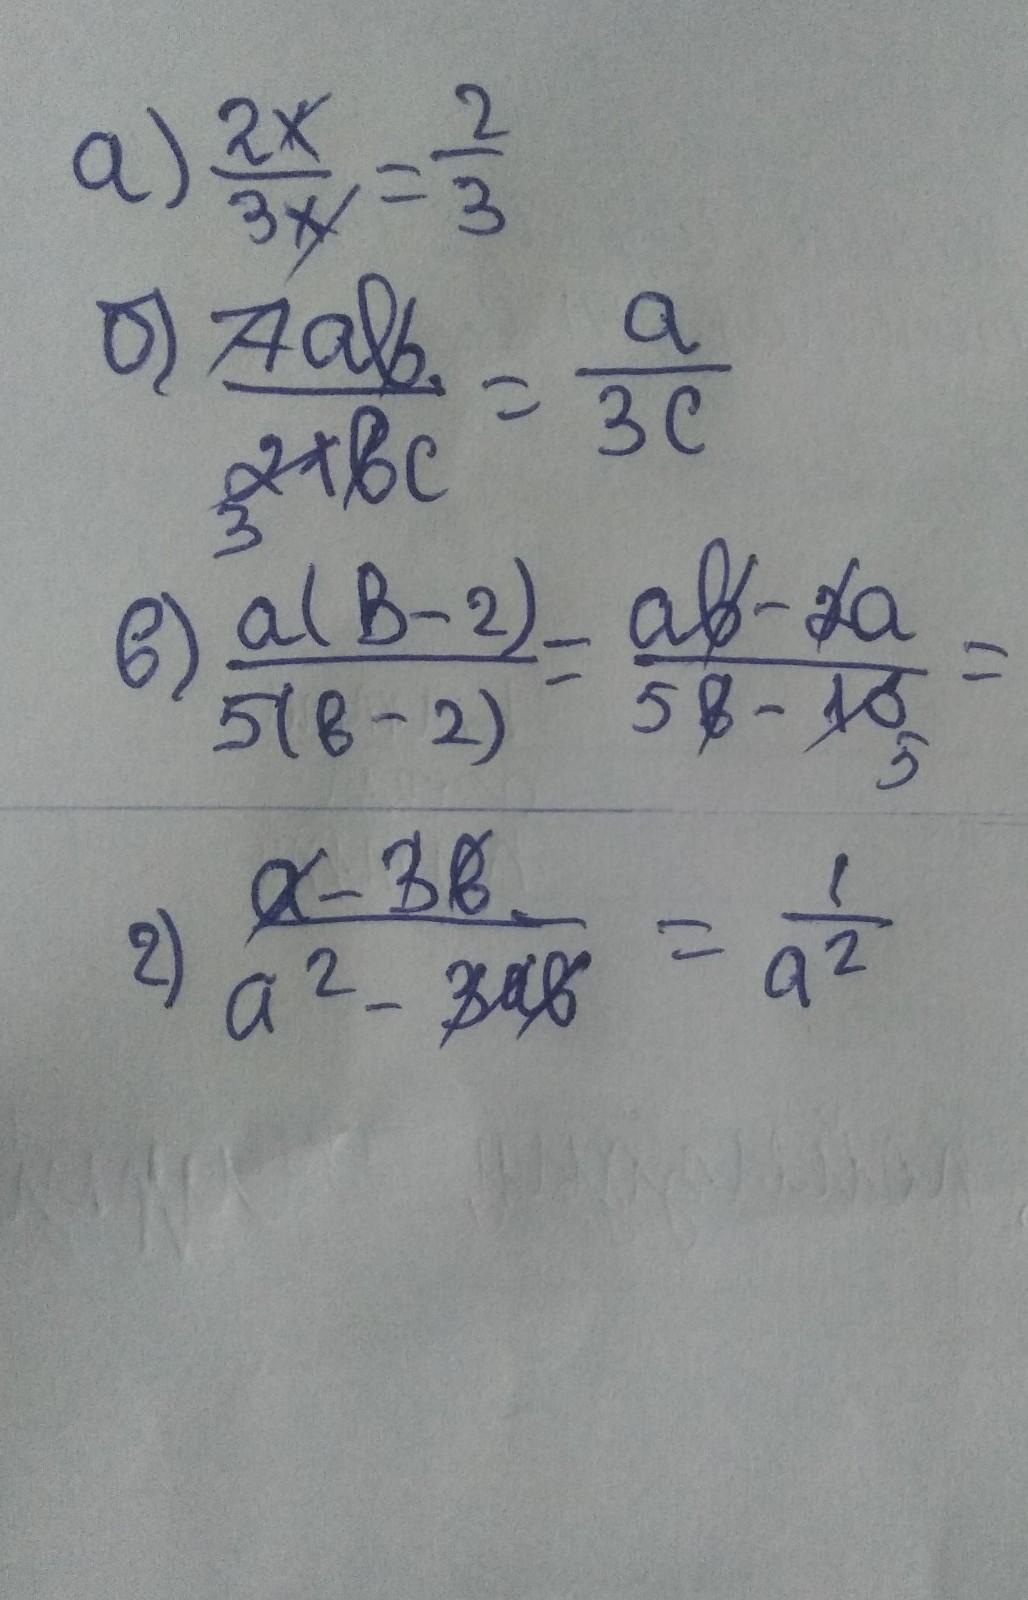 а) 2x/3x = 2/3
б) 7ab/21bc = a/3c
3
в) a(b-2)/5(b-2) = ab-2a/5b-10 =
5
г) a-3b/a²-3ab = 1/a²